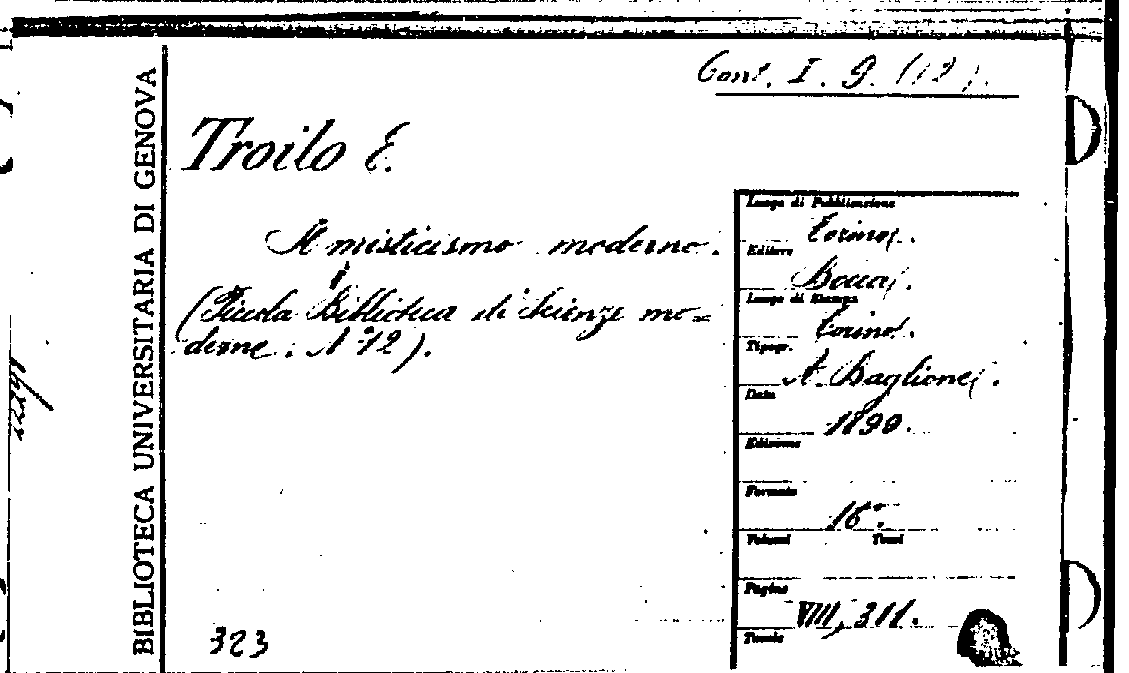 Cont. I. 9. (12).
BIBLIOTECA UNIVERSITARIA DI GENOVA
Troilo E.
Il misticismo moderno.
(Piccola Biblioteca di scienze mo=
derne. N° 12).
Luogo di Pubblicazione
Torino.
Editore
Bocca.
Luogo di Stampa
Torino.
Tipogr.
A. Baglione.
Data
1899.
Edizione
Formato
16°.
Volumi Tomi
Pagine
VIII, 311.
Tavole
323